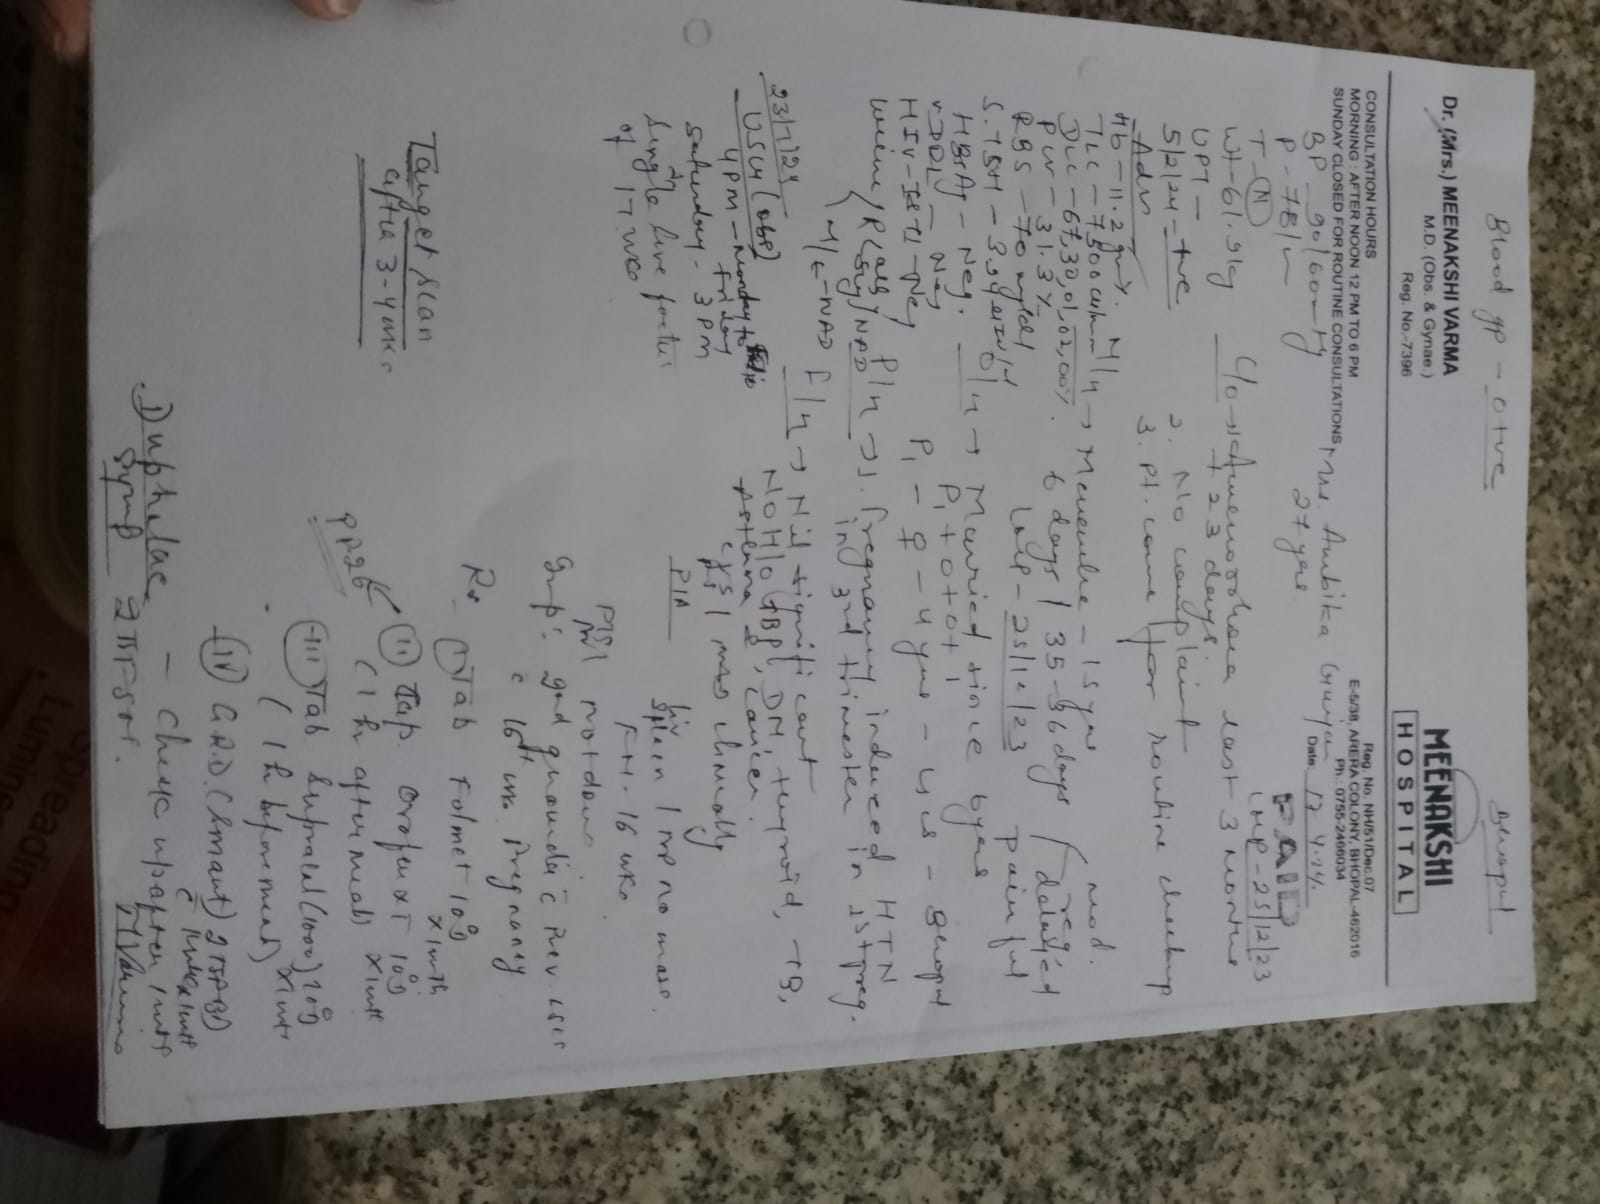 Blood gp - O+ve
Bhopal
Dr. (Mrs.) MEENAKSHI VARMA
M.D. (Obs. & Gynae.)
Reg. No.-7396
MEENAKSHI
HOSPITAL
CONSULTATION HOURS
MORNING : AFTER NOON 12 PM TO 6 PM
SUNDAY CLOSED FOR ROUTINE CONSULTATIONS
Reg. No. NH/51/Dec.07
E-5/38, ARERA COLONY, BHOPAL-462016
Ph.: 0755-2466034
Date 17.4.24
Mrs. Ambika
27 yrs.
PAID
LMP - 25/12/23
BP - 90/60
P - 78/m
T - (N)
Wt - 61.9
UPT -
5/2/24 - +ve
C/o → Amenorrhoea last 3 months
+ 23 days.
2. No complaint
3. Pt. came for routine checkup
Adv
Hb - 11.2 gm%.
TLC - 7500
DLC - 67,30,01,02,00%.
PCV - 31.3%
RBS - 70 mg/dl
S. TSH - 3.
HBsAg - Neg.
VDRL - Neg
HIV - I & II - Neg
Urine R
M/E - NAD
M/H → Menarche - 15 yrs
6 days / 35-36 days / reg
mod.
delayed
LMP - 25/12/23 painful
O/H → Married since 6 years
P1+0+0+1
P1 - ♀ - 4 yrs - LSCS - Bhopal
P/H → 1. Pregnancy induced HTN
in 3rd trimester in 1st preg.
F/H → Nil significant
N/O/H/O ↑BP, DM, thyroid, TB,
Asthma & Cancer.
23/7/24
USG (obs)
4 PM - Monday to Friday
Saturday - 3 PM
Single live foetus
of 17 wks
CVS
RS
NAS clinically
P/A
Liv
Spleen
no mass.
FH - 16 wks.
P/S
not done
Imp: gravida c Prev. LSCS
c 16+ wk. Pregnancy
Target Scan
after 3-4 wks
Rx
(i) Tab Folmet 1 od
x 1 mth
(ii) Cap. Orofer XT 1 od
(1 hr after meal) x 1 mth
(iii) Tab Supracal (1000) 1 od
(1 h before meal) x 1 mth
(iv) G.R.D. (Smart) 2 TSF BD
c milk x 1 mth
- Check up after 1 mth
1) Duphalac
Syrup 2 TSF
MVarma